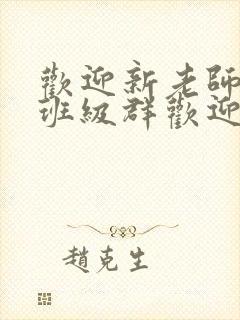 歡迎新老師
班級群歡迎
趙克生